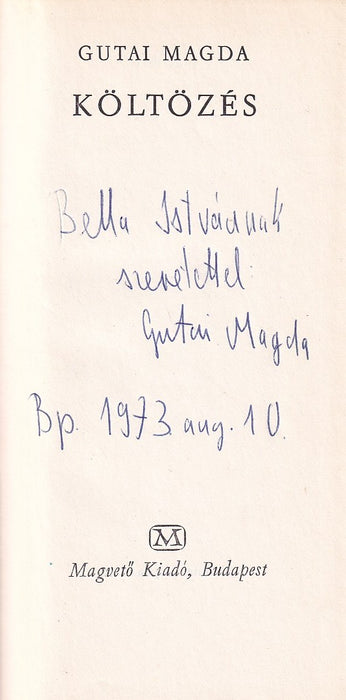 GUTAI MAGDA
KÖLTÖZÉS
Bella Istvánnak
szeretettel
Gutai Magda
Bp. 1973. aug. 10.
M
Magvető Kiadó, Budapest